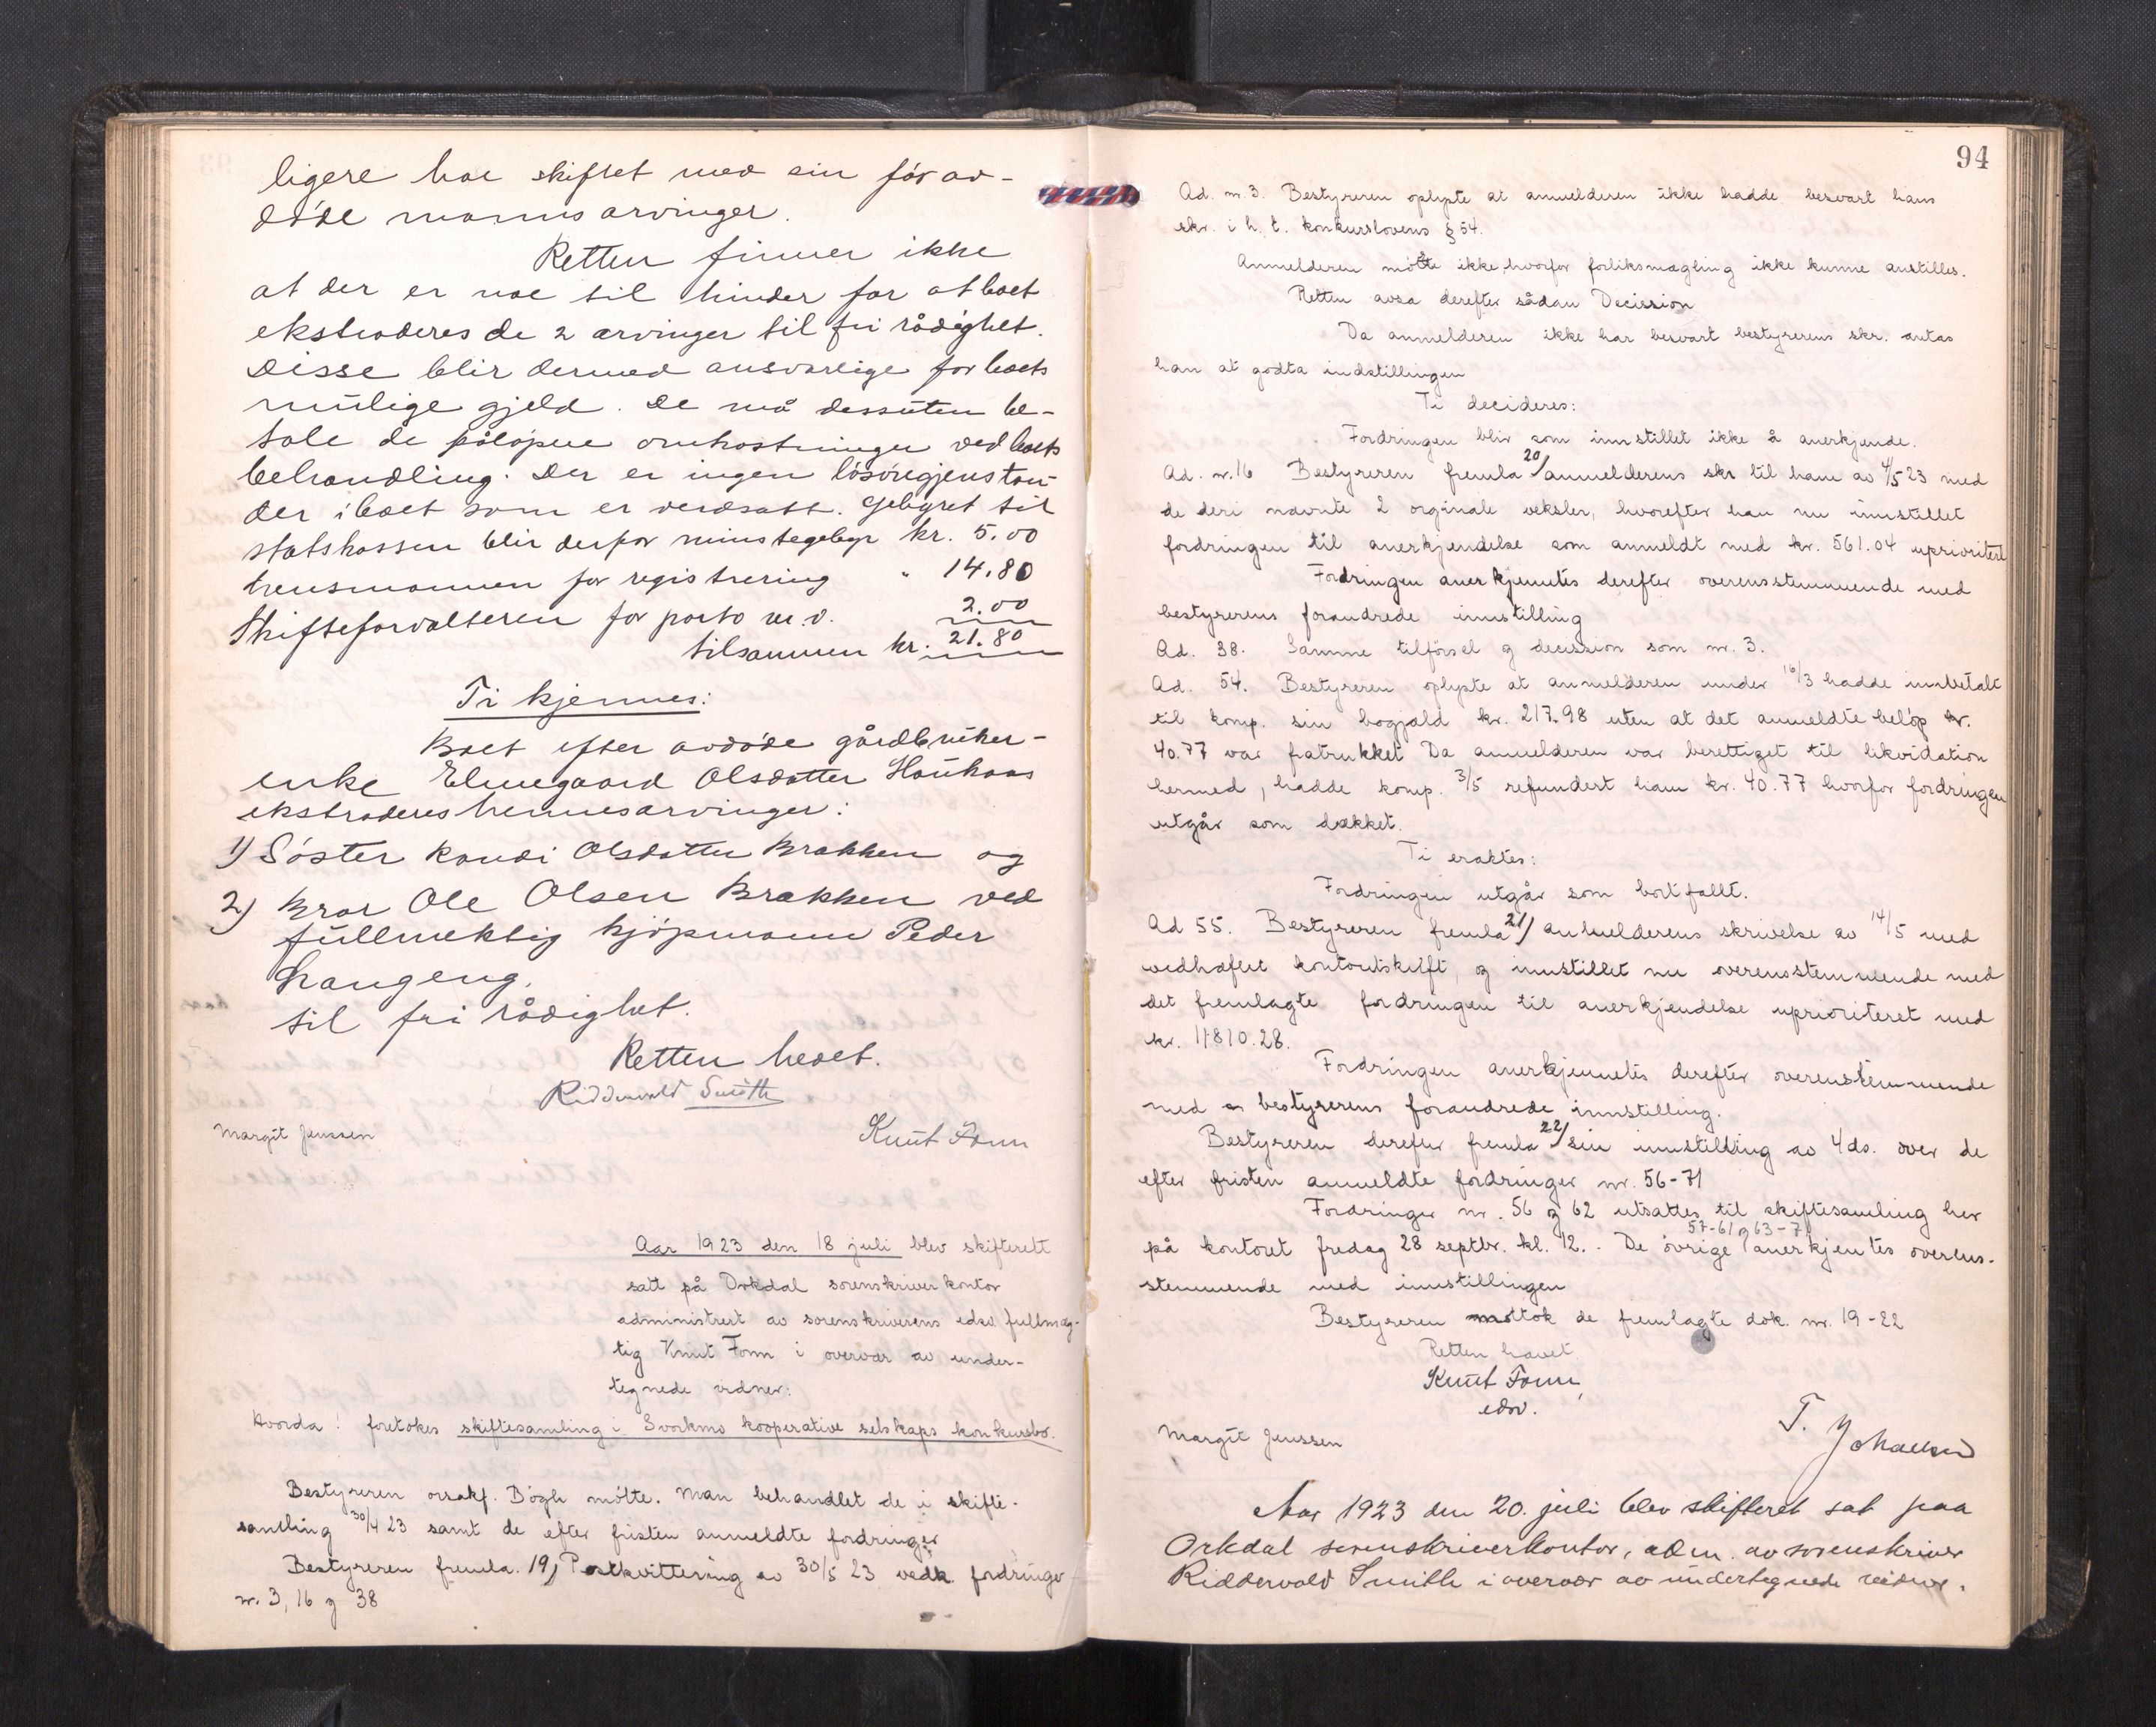 ligere har skiftet med sin før av-
døde manns arvinger.
Retten finner ikke
at der er noe til hinder for at boet
ekstraderes de 2 arvinger til fri rådighet.
Disse blir dermed ansvarlige for boets
mulige gjeld. De må dessuten be-
tale de påløpne omkostninger ved boets
behandling. Der er ingen løsøregjenstan-
der i boet som er verdsatt. Gebyret til
statskassen blir derfor minstegebyr kr. 5.00
Lensmannen for registrering " 14.80
Skifteforvalteren for porto m.v. 2.00
tilsammen kr. 21.80
Ti kjennes:
Boet efter avdøde gårdbruker-
enke Elmegaard Olsdatter Haukaas
ekstraderes hennes arvinger:
1) Søster Randi Olsdatter Brakken og
2) Bror Ole Olsen Brakken ved
fullmektig kjøpmann Peder
Langeng,
til fri rådighet.
Retten hevet.
Riddervold Smith
Margit Jenssen Knut Fonn
Aar 1923 den 18 juli blev skifterett
satt på Orkdal sorenskriverkontor
administrert av sorenskriverens edsv. fullmæg-
tig Knut Fonn i overvær av under-
tegnede vidner:
Hvorda! foretokes skiftesamling i Svorkmo kooperative selskaps konkursbo.
Bestyreren orsakf. Bögh møtte. Man behandlet de i skifte-
samling 30/4 23 samt de efter fristen anmeldte fordringer
Bestyreren fremla. 19) Postkvittering av 30/5 23 vedk. fordringer
nr. 3, 16 og 38
94
Ad. nr. 3. Bestyreren oplyste at anmelderen ikke hadde besvart hans
skr. i h. t. konkurslovens § 54.
Anmelderen møtte ikke, hvorfor forliksmægling ikke kunne anstilles.
Retten avsa derefter sådan Decission
Da anmelderen ikke har besvart bestyrerens skr. antas
han at godta indstillingen
Ti decideres:
Fordringen blir som innstillet ikke å anerkjende.
Ad. nr. 16 Bestyreren fremla 20) anmelderens skr til ham av 4/5 23 med
de deri nævnte 2 orginale veksler, hvorefter han nu innstillet
fordringen til anerkjendelse som anmeldt med kr. 561.04 uprioritert
Fordringen anerkjenntes derefter overensstemmende med
bestyrerens forandrede innstilling
Ad. 38. Samme tilførsel og decission som nr. 3.
Ad. 54. Bestyreren oplyste at anmelderen under 16/3 hadde innbetalt
til komp. sin bogjæld kr. 217.98 uten at det anmeldte beløp kr.
40.77 var fratrukket Da anmelderen var berettiget til likvidation
hermed, hadde komp. 3/5 refundert ham kr. 40.77 hvorfor fordringen
utgår som dækket.
Ti eraktes:
Fordringen utgår som bortfallt.
Ad 55. Bestyreren fremla 21) anmelderens skrivelse av 14/5 med
vedhæftet kontoutskrift, og innstillet nu overensstemmende med
det fremlagte fordringen til anerkjendelse uprioriteret med
kr. 11810.28.
Fordringen anerkjenntes derefter overenstemmende
med bestyrerens forandrede innstilling.
Bestyreren derefter fremla 22) sin innstilling av 4 ds. over de
efter fristen anmeldte fordringer nr. 56-71
Fordringer nr. 56 og 62 utsattes til skiftesamling her
57-61 og 63-71
på kontoret fredag 28 septbr. kl. 12. - De øvrige anerkjentes overens-
stemmende med innstillingen
Bestyreren mottok de fremlagte dok. nr. 19-22
Retten hævet
Knut Fonn
edsv.
Margit Jenssen T. Johansen
Aar 1923 den 20. juli blev skifteret sat paa
Orkdal sorenskriverkontor, adm. av sorenskriver
Riddervold Smith i overvær av undertegnede vidner.